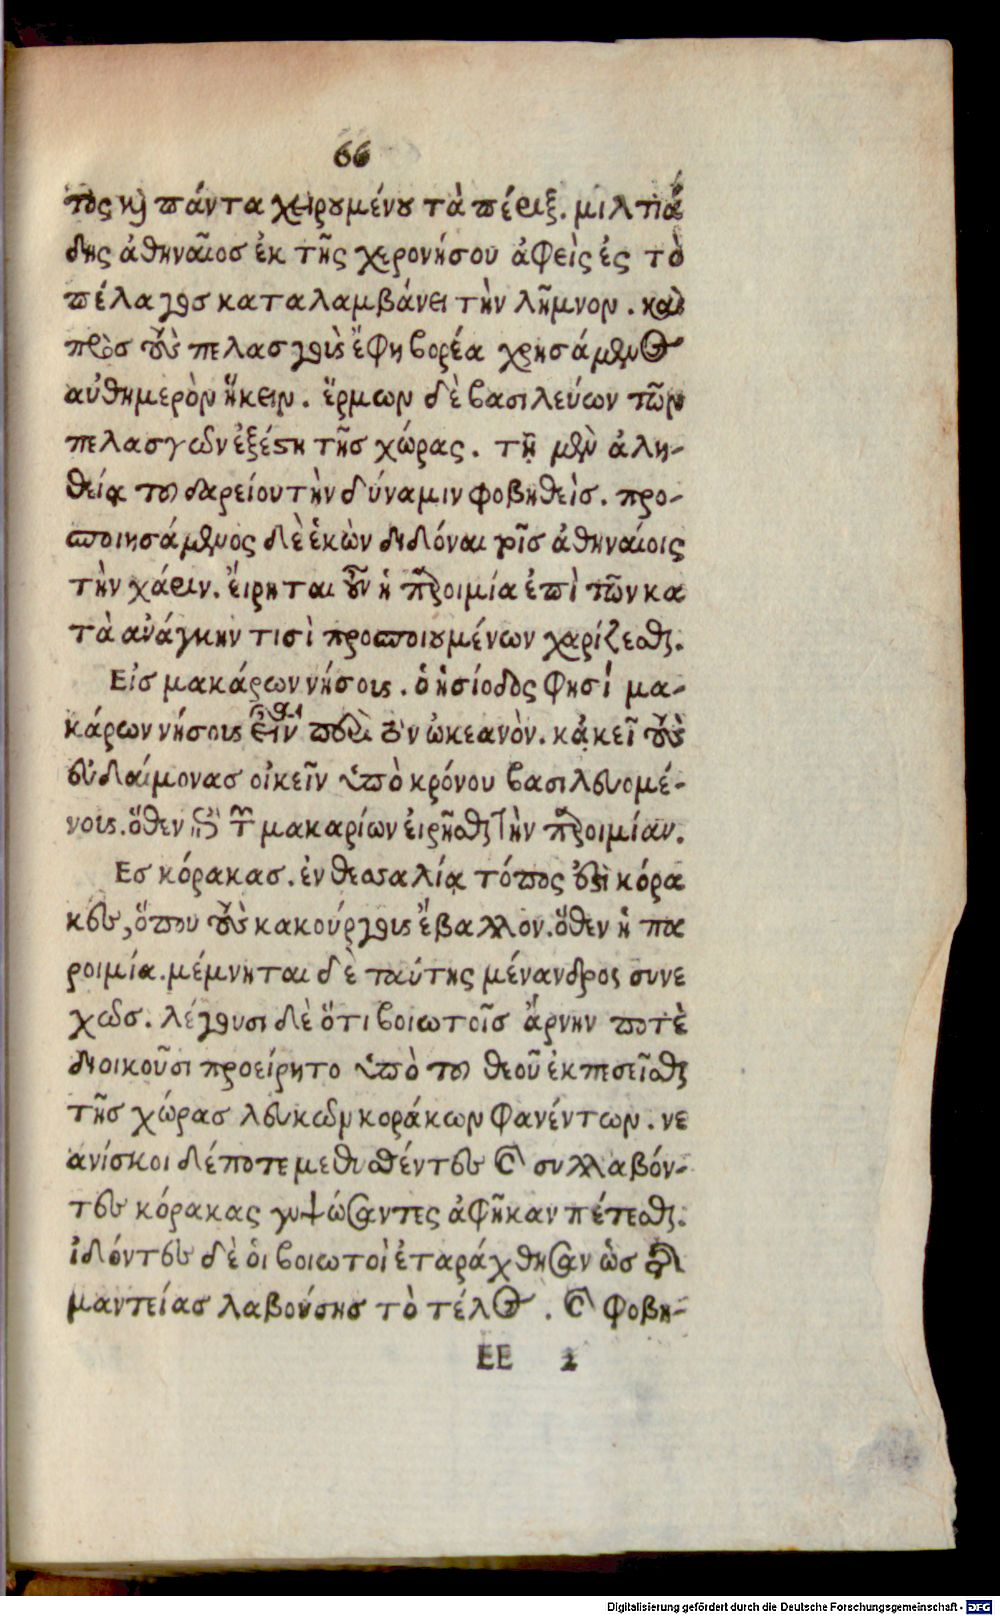 66
τος καὶ πάντα χειρουμένου τὰ πέριξ. μιλτιά
δης ἀθηναῖοσ ἐκ τῆς χερονήσου ἀφεὶς ἐς τὸ
πέλαγοσ καταλαμβάνει τὴν λῆμνον. καὶ
πρὸσ τοὺς πελασγοὺς ἔφη βορέα χρησάμενος
αὐθημερὸν ἥκειν. ἕρμων δὲ βασιλεύων τῶν
πελασγῶν ἐξέστη τῆσ χώρας. τῇ μὲν ἀλη-
θείᾳ του δαρείου τὴν δύναμιν φοβηθεὶσ. προ-
σποιησάμενος δὲ ἑκὼν διδόναι τοῖσ ἀθηναίοις
τὴν χάριν. ἔιρηται οὖν ἡ παροιμία ἐπὶ τῶν κα
τὰ ανάγκην τισὶ προσποιουμένων χαρίζεσθαι.
Εἰσ μακάρων νήσους. ὁ ἡσίοδος φησί μα-
κάρων νήσους εἶναι περὶ τὸν ὠκεανὸν. κἀκεῖ τοὺς
εὐδαίμονασ οἰκεῖν ὑπὸ κρόνου βασιλευομέ-
νους. ὅθεν ἐπὶ τῶν μακαρίων ἐιρῆσθαι τὴν παροιμίαν.
Εσ κόρακασ. ἐν θεσσαλίᾳ τόπος ἐστὶ κόρα
κες, ὅπου τοὺς κακούργους ἔβαλλον. ὅθεν ἡ πα
ροιμία. μέμνηται δὲ ταύτης μένανδρος συνε
χῶσ. λέγουσι δὲ ὅτι βοιωτοῖσ ἄρνην ποτὲ
διοικοῦσι προείρητο ὑπὸ του θεοῦ ἐκπεσεῖσθαι
τῆσ χώρασ λευκῶν κοράκων φανέντων. νε
ανίσκοι δέ ποτε μεθυσθέντες καὶ συλλαβόν-
τες κόρακας γυψώσαντες ἀφῆκαν πέτεσθαι.
ἰδόντες δὲ ὁι βοιωτοὶ ἐταράχθησαν ὡσ τῆς
μαντείασ λαβούσησ τὸ τέλος. καὶ φοβη-
EE 2
Digitalisierung gefördert durch die Deutsche Forschungsgemeinschaft - DFG